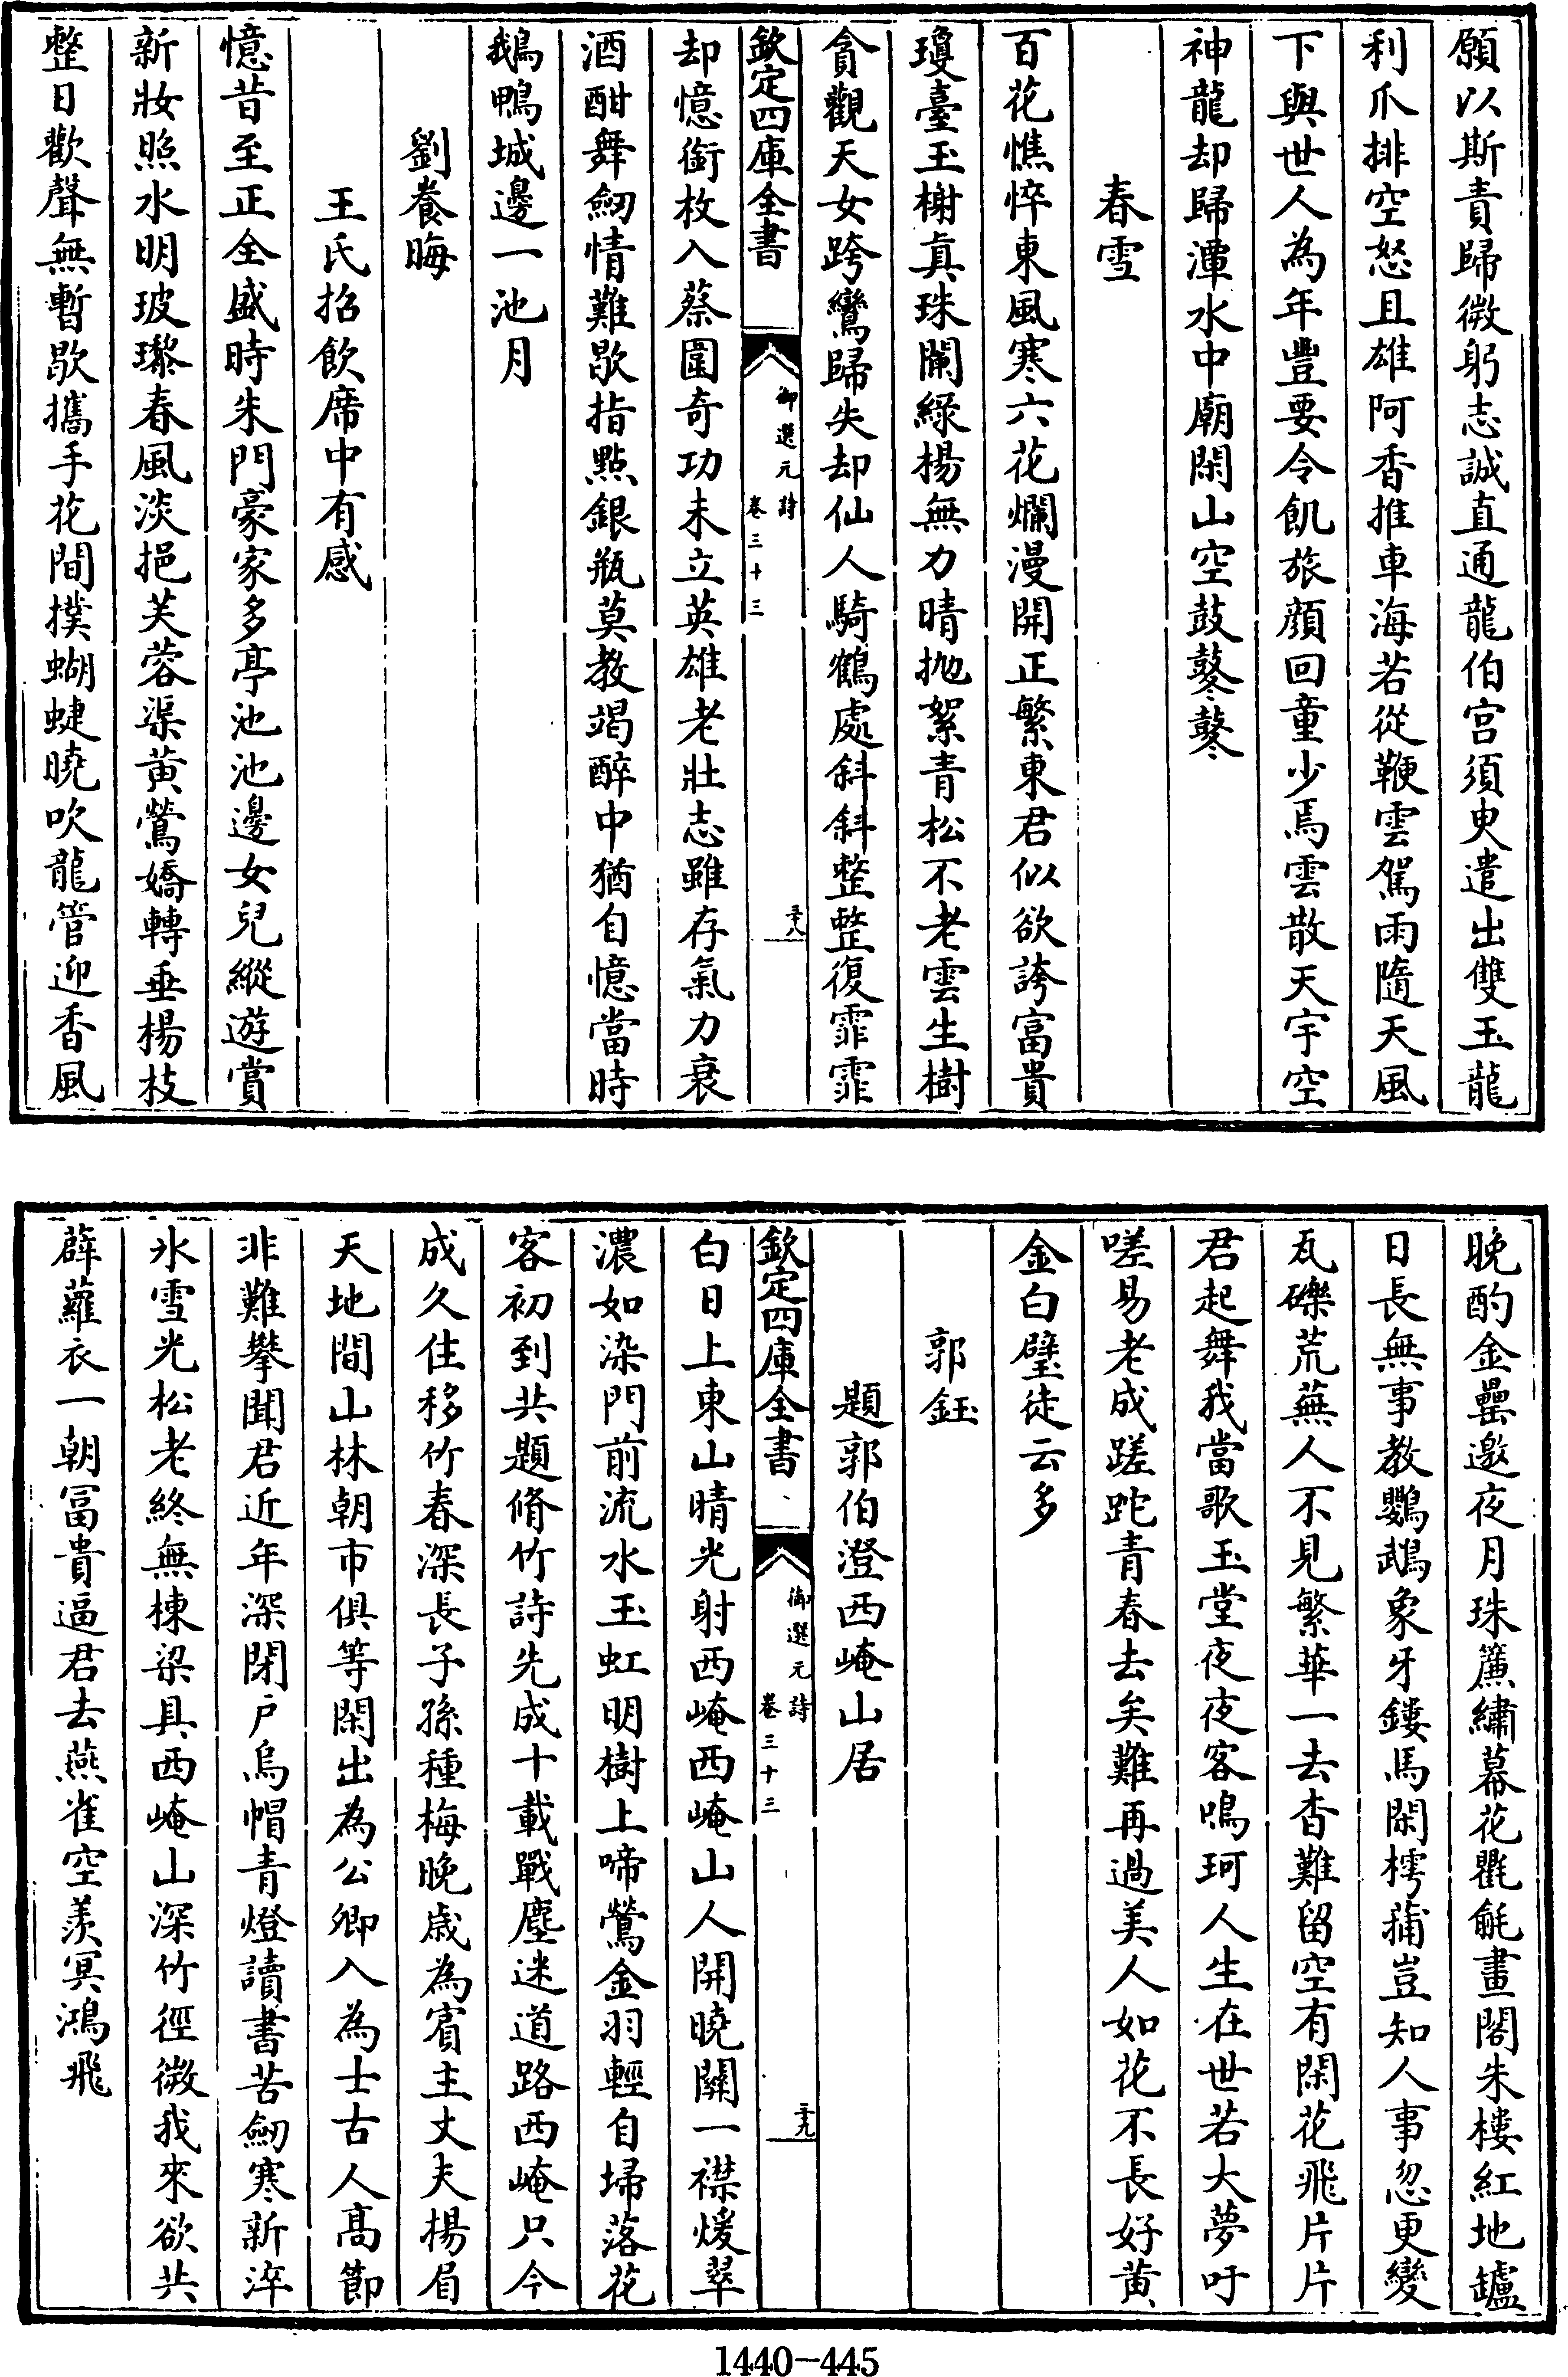 願以斯責歸微躬志誠直通龍伯宮須臾遣出雙玉龍
利爪排空怒且雄阿香推車海若從鞭雲駕雨隨天風
下與世人為年豐要令飢旅顔回童少焉雲散天宇空
神龍却歸潭水中廟閑山空鼓鼕鼕
春雪
百花憔悴東風寒六花爛漫開正繁東君似欲誇富貴
瓊臺玉榭真珠闌綠楊無力晴抛絮青松不老雲生樹
貪觀天女跨鸞歸失却仙人騎鶴處斜斜整整復霏霏
欽定四庫全書
御選元詩
卷三十三
三十八
却憶銜枚入蔡圍奇功未立英雄老壯志雖存氣力衰
酒酣舞劒情難歇指點銀瓶莫教竭醉中猶自憶當時
鵝鴨城邊一池月
劉養晦
王氏招飲席中有感
憶昔至正全盛時朱門豪家多亭池池邊女兒縱遊賞
新妝照水明玻瓈春風淡挹芙蓉渠黃鶯嬌轉垂楊枝
整日歡聲無暫歇攜手花間撲蝴蜨曉吹龍管迎香風
晚酌金罍邀夜月珠簾繡幕花氍毹畫閣朱樓紅地罏
日長無事教鸚鵡象牙鏤馬閑樗蒱豈知人事忽更變
瓦礫荒蕪人不見繁華一去杳難留空有閑花飛片片
君起舞我當歌玉堂夜夜客鳴珂人生在世若大夢吁
嗟易老成蹉跎青春去矣難再過美人如花不長好黃
金白璧徒云多
郭鈺
題郭伯澄西崦山居
欽定四庫全書
御選元詩
卷三十三
三十九
白日上東山晴光射西崦西崦山人開曉關一襟煖翠
濃如染門前流水玉虹明樹上啼鶯金羽輕自埽落花
客初到共題脩竹詩先成十載戰塵迷道路西崦只今
成久住移竹春深長子孫種梅晚歲為賓主丈夫揚眉
天地間山林朝市俱等閑出為公卿入為士古人高節
非難攀聞君近年深閉户烏帽青燈讀書苦劒寒新淬
氷雪光松老終無棟梁具西崦山深竹徑微我來欲共
薜蘿衣一朝冨貴逼君去燕雀空羨冥鴻飛
1440-445